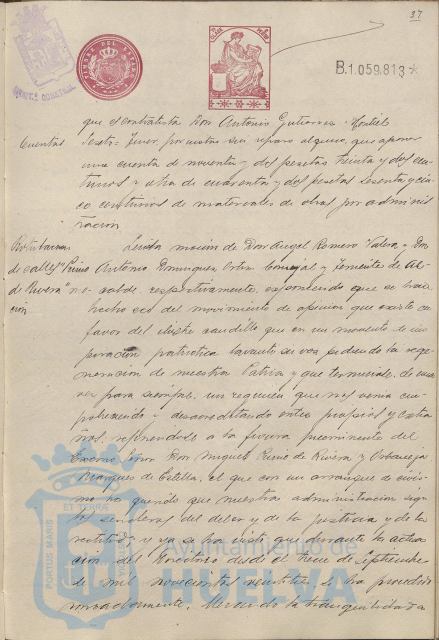 37
TIMBRE DEL ESTADO
B.1.059.813*
que el contratista Don Antonio Gutierrez Montiel
Cuentas
una cuenta de noventa y dos pesetas treinta y dos cen-
timos y otra de cuarenta y dos pesetas sesenta y cin-
co centimos de materiales de obras por adminis
tracion
Rotulacion Leida mocion de Don Angel Romero Valera y Don
de calles "Primo Antonio Dominguez Ortiz Concejal y Teniente de Al-
de Rivera" calde respectivamente, exponiendo que se han
hecho eco del movimiento de opinion que existe en
favor del ilustre caudillo que en un momento de ins
piracion patriotica levantó su voz pidiendo la rege-
neracion de nuestra Patria y que terminase de una
vez para siempre un regimen que nos venia em-
pobreciendo y desacreditando entre propios y extra
ños, refiriendose a la figura preeminente del
Excmo Señor Don Miguel Primo de Rivera y Orbaneja
Marques de Estella, el que con un arranque de civis-
mo ha querido que nuestra administracion siga
los senderos del deber y de la justicia y de la
rectitud, y ya se ha visto que durante la actua
cion del Directorio desde el trece de Septiembre
de mil novecientos veintitres se ha procedido
la tranquilidad a
PORTUS MARIS ET TERRÆ CUSTODIA
Ayuntamiento de
HUELVA